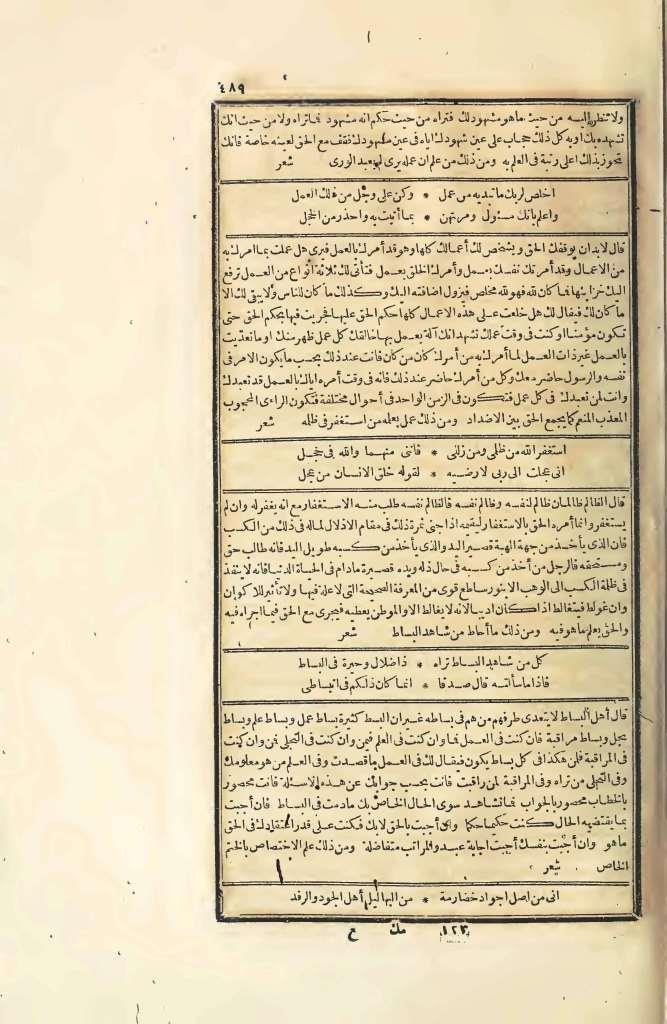 ٤٨٩
ولا تنظر اليه من حيث ما هو مشهود لك فتراه من حيث حكم انه مشهود فما تراه ولا من حيث انك
تشهده بك او به كل ذلك حجاب على عين شهودك اياه فى عين مشهودك فقف مع الحق لعينه خاصة فانك
تحوز بذلك اعلى رتبة فى العلم به ومن ذلك من علم ان عمله يرى لم يعبد الورى شعر
اخلص لربك ما تبديه من عمل * وكن على وجل من ذلك العمل
واعلم بانك مسئول ومرتهن * بما أتيت به واحذر من الخجل
قال لا بد ان يوقفك الحق ويشخص لك أعمالك كلها وهو قد أمرك بالعمل فيرى هل عملت بما امرك به
من الاعمال وقد أمرتك نفسك بعمل وأمرك الخلق بعمل فتأتى لك ثلاثة أنواع من العمل ترفع
اليك خزاينها فما كان لله فهو لله مخلص فيزول اضافته اليك وكذلك ما كان للناس ولا يبقى لك الا
ما كان لك فيقال لك هل خلعت على هذه الاعمال كلها حكم الحق عليها فجريت فيها بحكم الحق حتى
تكون مؤمنا او كنت فى وقت عملك تشهد انك آلة يعمل بها خالقك كل عمل ظهر منك او ما تعديت
بالعمل غير ذات العمل لما أمرك به من أمرك كان من كان فانت عند ذلك بحسب ما يكون الامر فى
نفسه والرسول حاضر معك وكل من أمرك حاضر عند ذلك فانه فى وقت أمره اياك بالعمل قد تعبدك
وانت لمن تعبدك فى كل عمل فتكون فى الزمن الواحد فى أحوال مختلفة فتكون الراءى المحجوب
المعذب المنعم كما يجمع الحق بين الاضداد ومن ذلك عمل بعلمه من استغفر فى ظلمه شعر
استغفر الله من ظلمى ومن زللى * فاننى منهما والله فى خجل
انى عجلت الى ربى لارضيه * لقوله خلق الانسان من عجل
قال الظالم ظالمان ظالم لنفسه وظالم نفسه فالظالم نفسه طلب منه الاستغفار مع انه يغفر له وان لم
يستغفر وانما أمره الحق بالاستغفار ليقيمه اذا جنى ثمرة ذلك فى مقام الادلال لما له فى ذلك من الكسب
فان الذى يأخذ من جهة الهبة قصير اليد والذى يأخذ من كسبه طويل اليد فانه طالب حق
ومستحقه فالرجل من أخذ من كسبه فى حال ذله ويده قصيرة مادام فى الحياة الدنيا فانه لا ينفذ
فى ظلمة الكسب الى الوهب الا بنور ساطع قوى من المعرفة الصحيحة التى لا علة فيها ولا تأثير للاكوان
وان غولط فيتغالط اذا كان اديبا لانه لا يغالط الا والموطن يعطيه فيجرى مع الحق فيما اجراه فيه
والحق يعلم ما هو فيه ومن ذلك ما أحاط من شاهد البساط شعر
كل من شاهد البساط تراه * ذا ضلال وحيرة فى البساط
فاذا ما سألته قال صدقا * انما كان ذلكم فى انبساطى
قال أهل البساط لا يتعدى طرفهم من هم فى بساطه غير ان البسط كثيرة بساط عمل وبساط علم وبساط
تجل وبساط مراقبة فان كنت فى العمل فما وان كنت فى العلم فيمن وان كنت فى التجلى فمن وان كنت
فى المراقبة فلمن هكذا فى كل بساط يكون فيقال لك فى العمل ما قصدت وفى العلم من هو معلومك
وفى التجلى من تراه وفى المراقبة لمن راقبت فانت بحسب جوابك عن هذه الاسئلة فانت محصور
بالخطاب محصور بالجواب فما تشاهد سوى الحال الخاص بك مادمت فى البساط فان أجبت
بما يقتضيه الحال كنت حكيما حكما وان أجبت بالحق لا بك فكنت على قدر اعتقادك فى الحق
ما هو وان أجبت بنفسك أجبت اجابة عبد والمراتب متفاضلة ومن ذلك علم الاختصاص بالختم
الخاص شعر
انى من اصل اجواد خضارمة * من البهاليل أهل الجود والرفد
١٢٣ مك ح